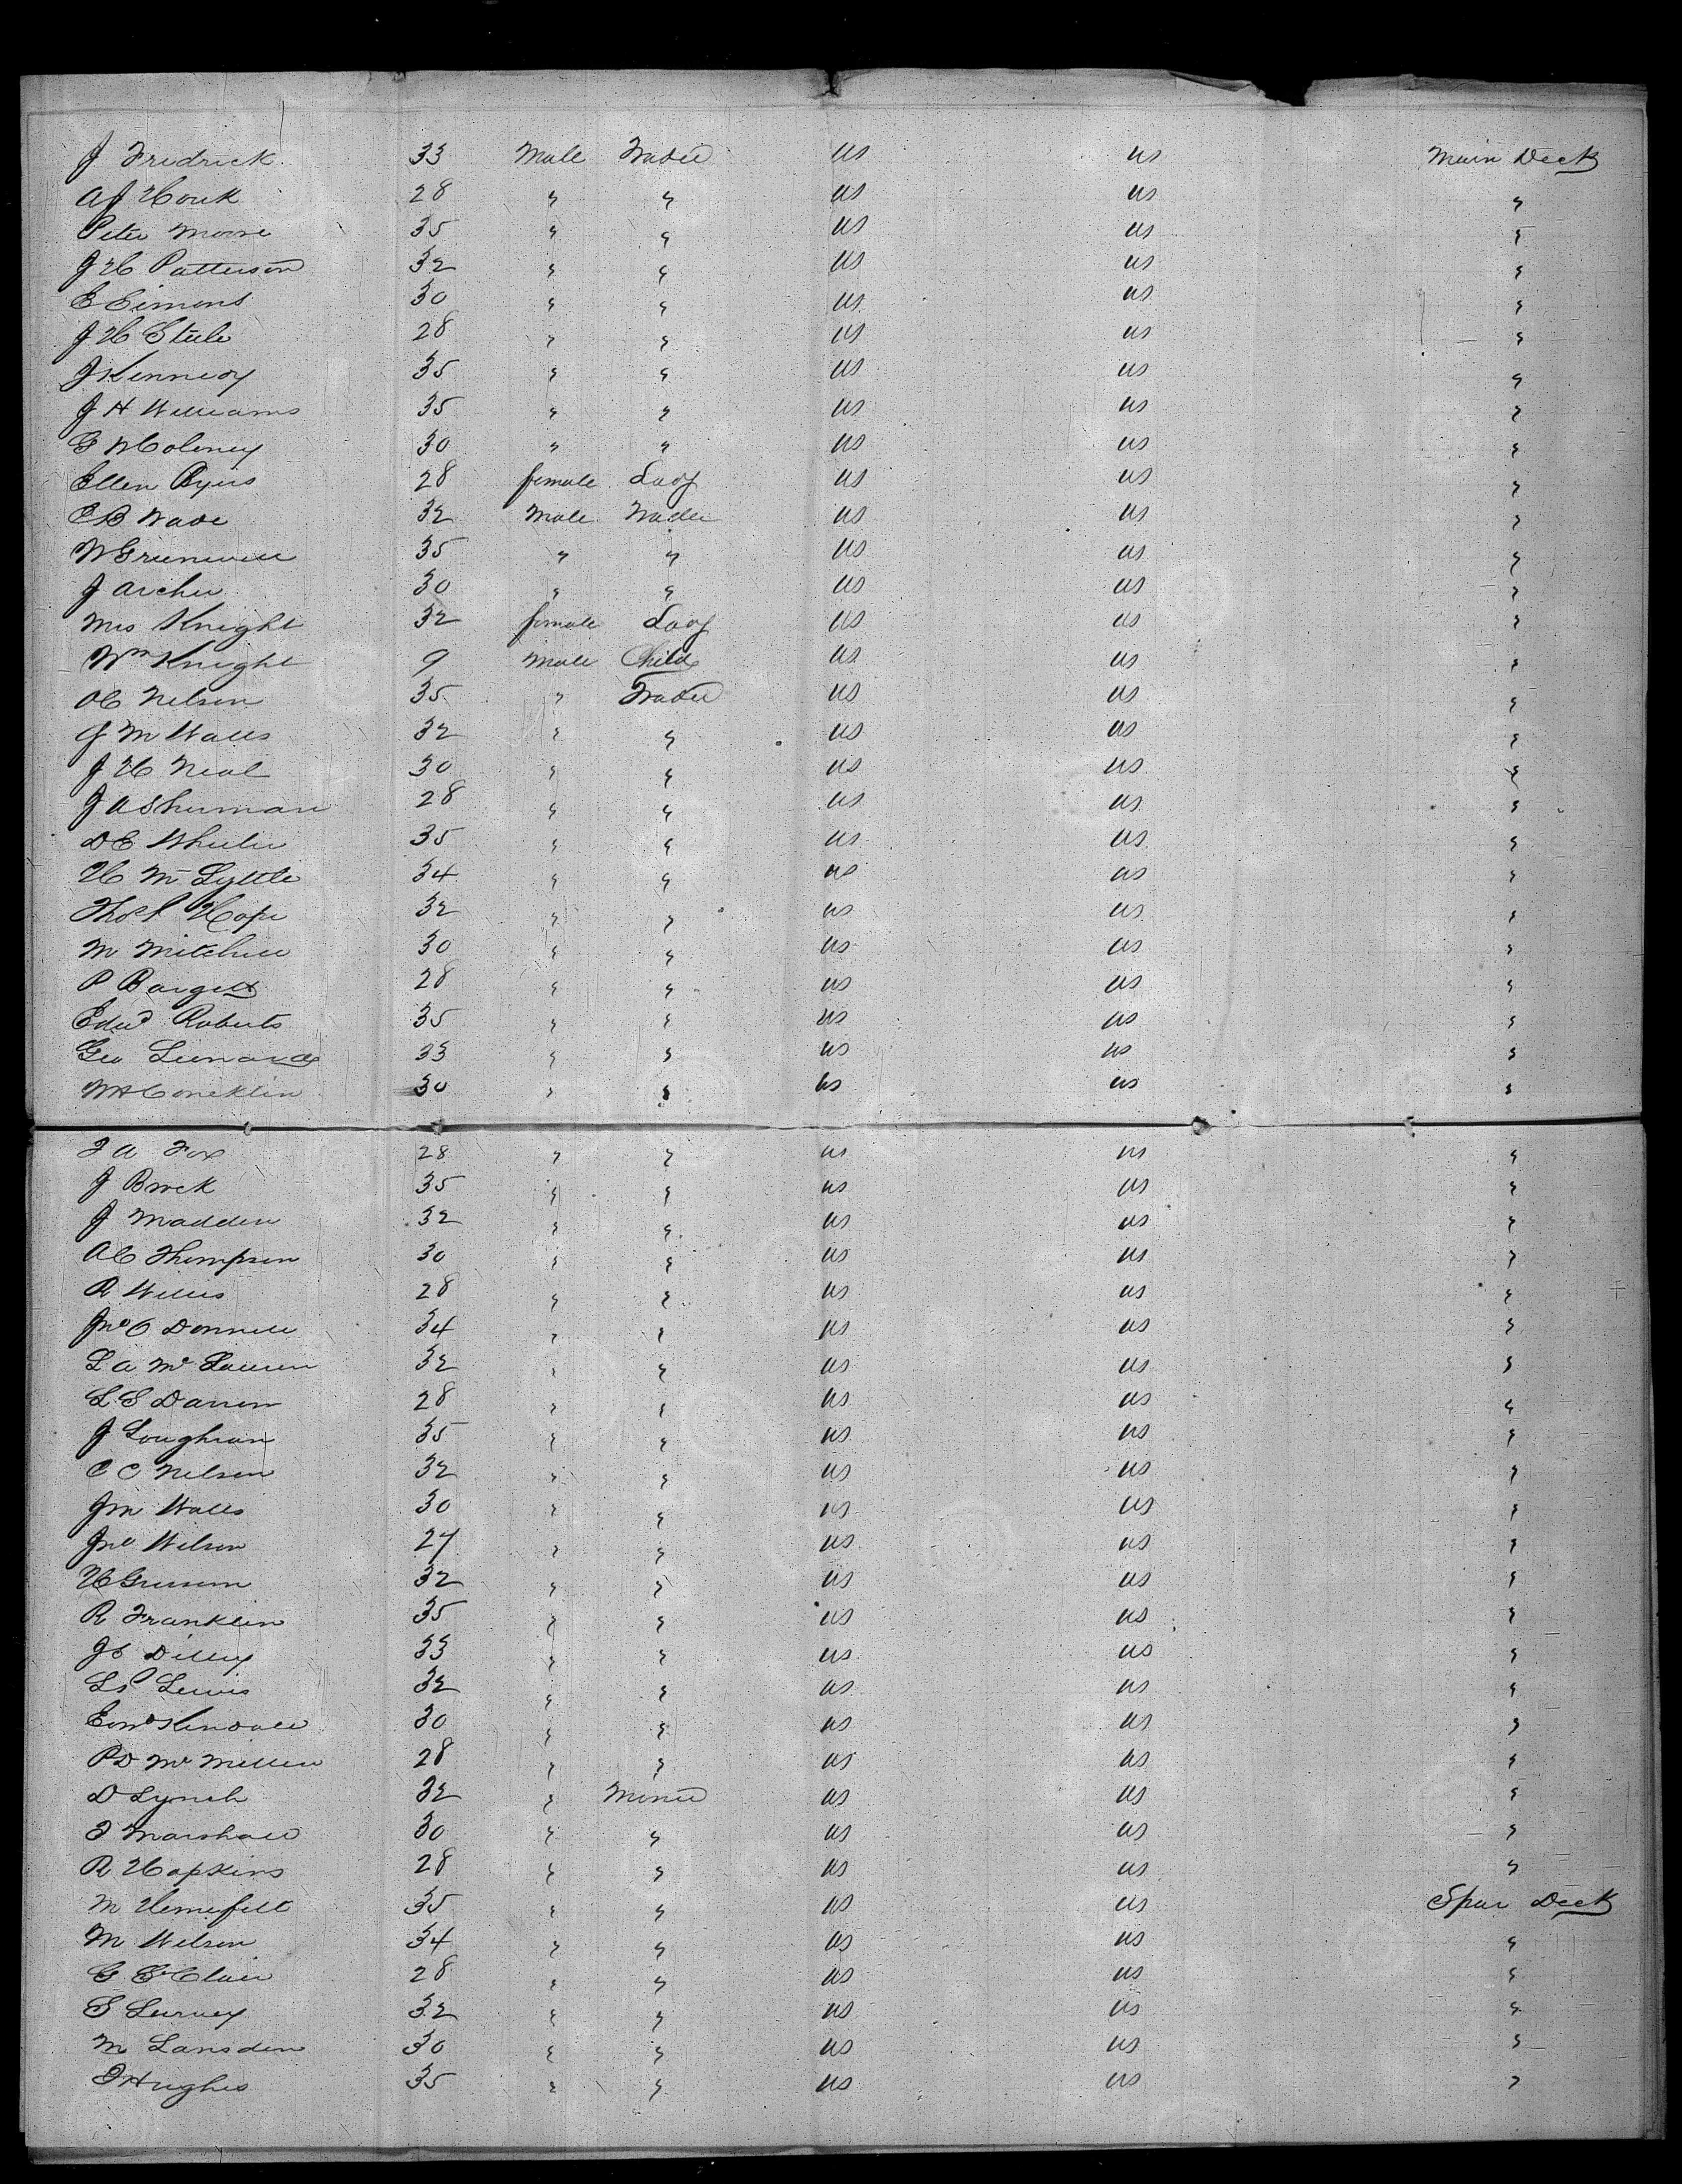 J Fredrick 33 Male Trader us us Main Deck
A J Houk 28 " " us us "
Peter Moore 35 " " us us "
J H Patterson 32 " " us us "
E Simons 30 " " us us "
J H Steele 28 " " us us "
J Kennedy 35 " " us us "
J H Williams 35 " " us us "
G W Coloney 30 " " us us "
Ellen Byers 28 female Lady us us "
E B Wade 32 Male Trader us us "
W Greenwell 35 " " us us "
J Archer 30 " " us us "
Mrs Knight 32 female Lady us us "
Wm Knight 9 Male Child us us "
O C Nelson 35 " Trader us us "
J M Walls 32 " " us us "
J H Neal 30 " " us us "
J A Sherman 28 " " us us "
D E Wheeler 35 " " us us "
H Mc Lyttle 34 " " us us "
Thos Hope 32 " " us us "
M Mitchell 30 " " us us "
P 28 " " us us "
Edwd Roberts 35 " " us us "
Geo Leonard 33 " " us us "
W H Concklin 30 " " us us "
F A Fox 28 " " us us "
J Brock 35 " " us us "
J Madden 32 " " us us "
A C Thompson 30 " " us us "
R Willis 28 " " us us "
Jno O Donnell 34 " " us us "
L A Mc Lauren 32 " " us us "
L S 28 " " us us "
J Loughran 35 " " us us "
C C Nelson 32 " " us us "
J M Walls 30 " " us us "
Jno Wilson 27 " " us us "
H 32 " " us us "
R Franklin 35 " " us us "
J C Dilley 33 " " us us "
L S Lewis 32 " " us us "
Edwd Kendall 30 " " us us "
P D Mc Millen 28 " " us us "
D Lynch 32 " Miner us us "
F Marshall 30 " " us us "
R Hopkins 28 " " us us "
M 35 " " us us Spar Deck
M Wilson 34 " " us us "
G St Clair 28 " " us us "
S Survey 32 " " us us "
M Lansden 30 " " us us "
F Hughes 35 " " us us "